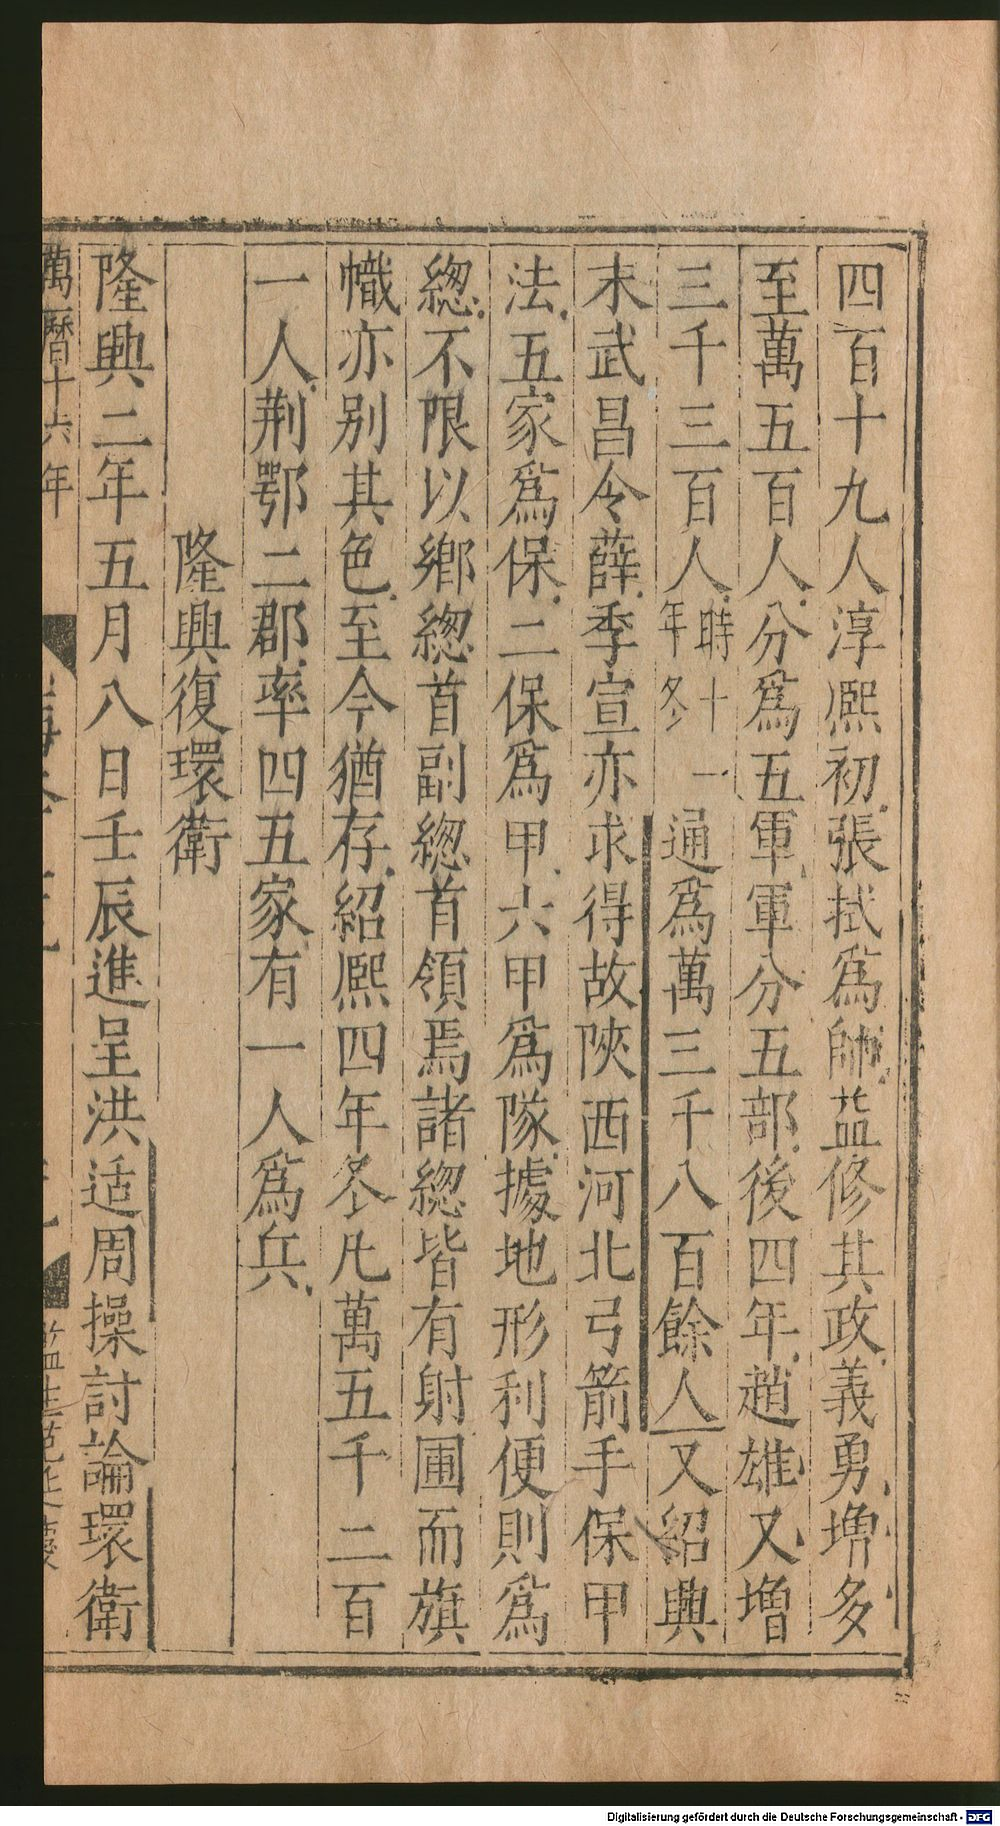 四百十九人淳熈初張拭爲帥益修其政義勇増多
至萬五百人分爲五軍軍分五部後四年趙雄又増
三千三百人時十一年冬通爲萬三千八百餘人又紹興
末武昌令薛季宣亦求得故陝西河北弓箭手保甲
法五家爲保二保爲甲六甲爲隊據地形利便則爲
緫不限以鄉緫首副緫首領焉諸緫皆有射圃而旗
幟亦别其色至今猶存紹熈四年冬凡萬五千二百
一人荆鄂二郡率四五家有一人爲兵
隆興復環衛
隆興二年五月八日壬辰進呈洪适周操討論環衛
萬曆十六年
Digitalisierung gefördert durch die Deutsche Forschungsgemeinschaft - DFG